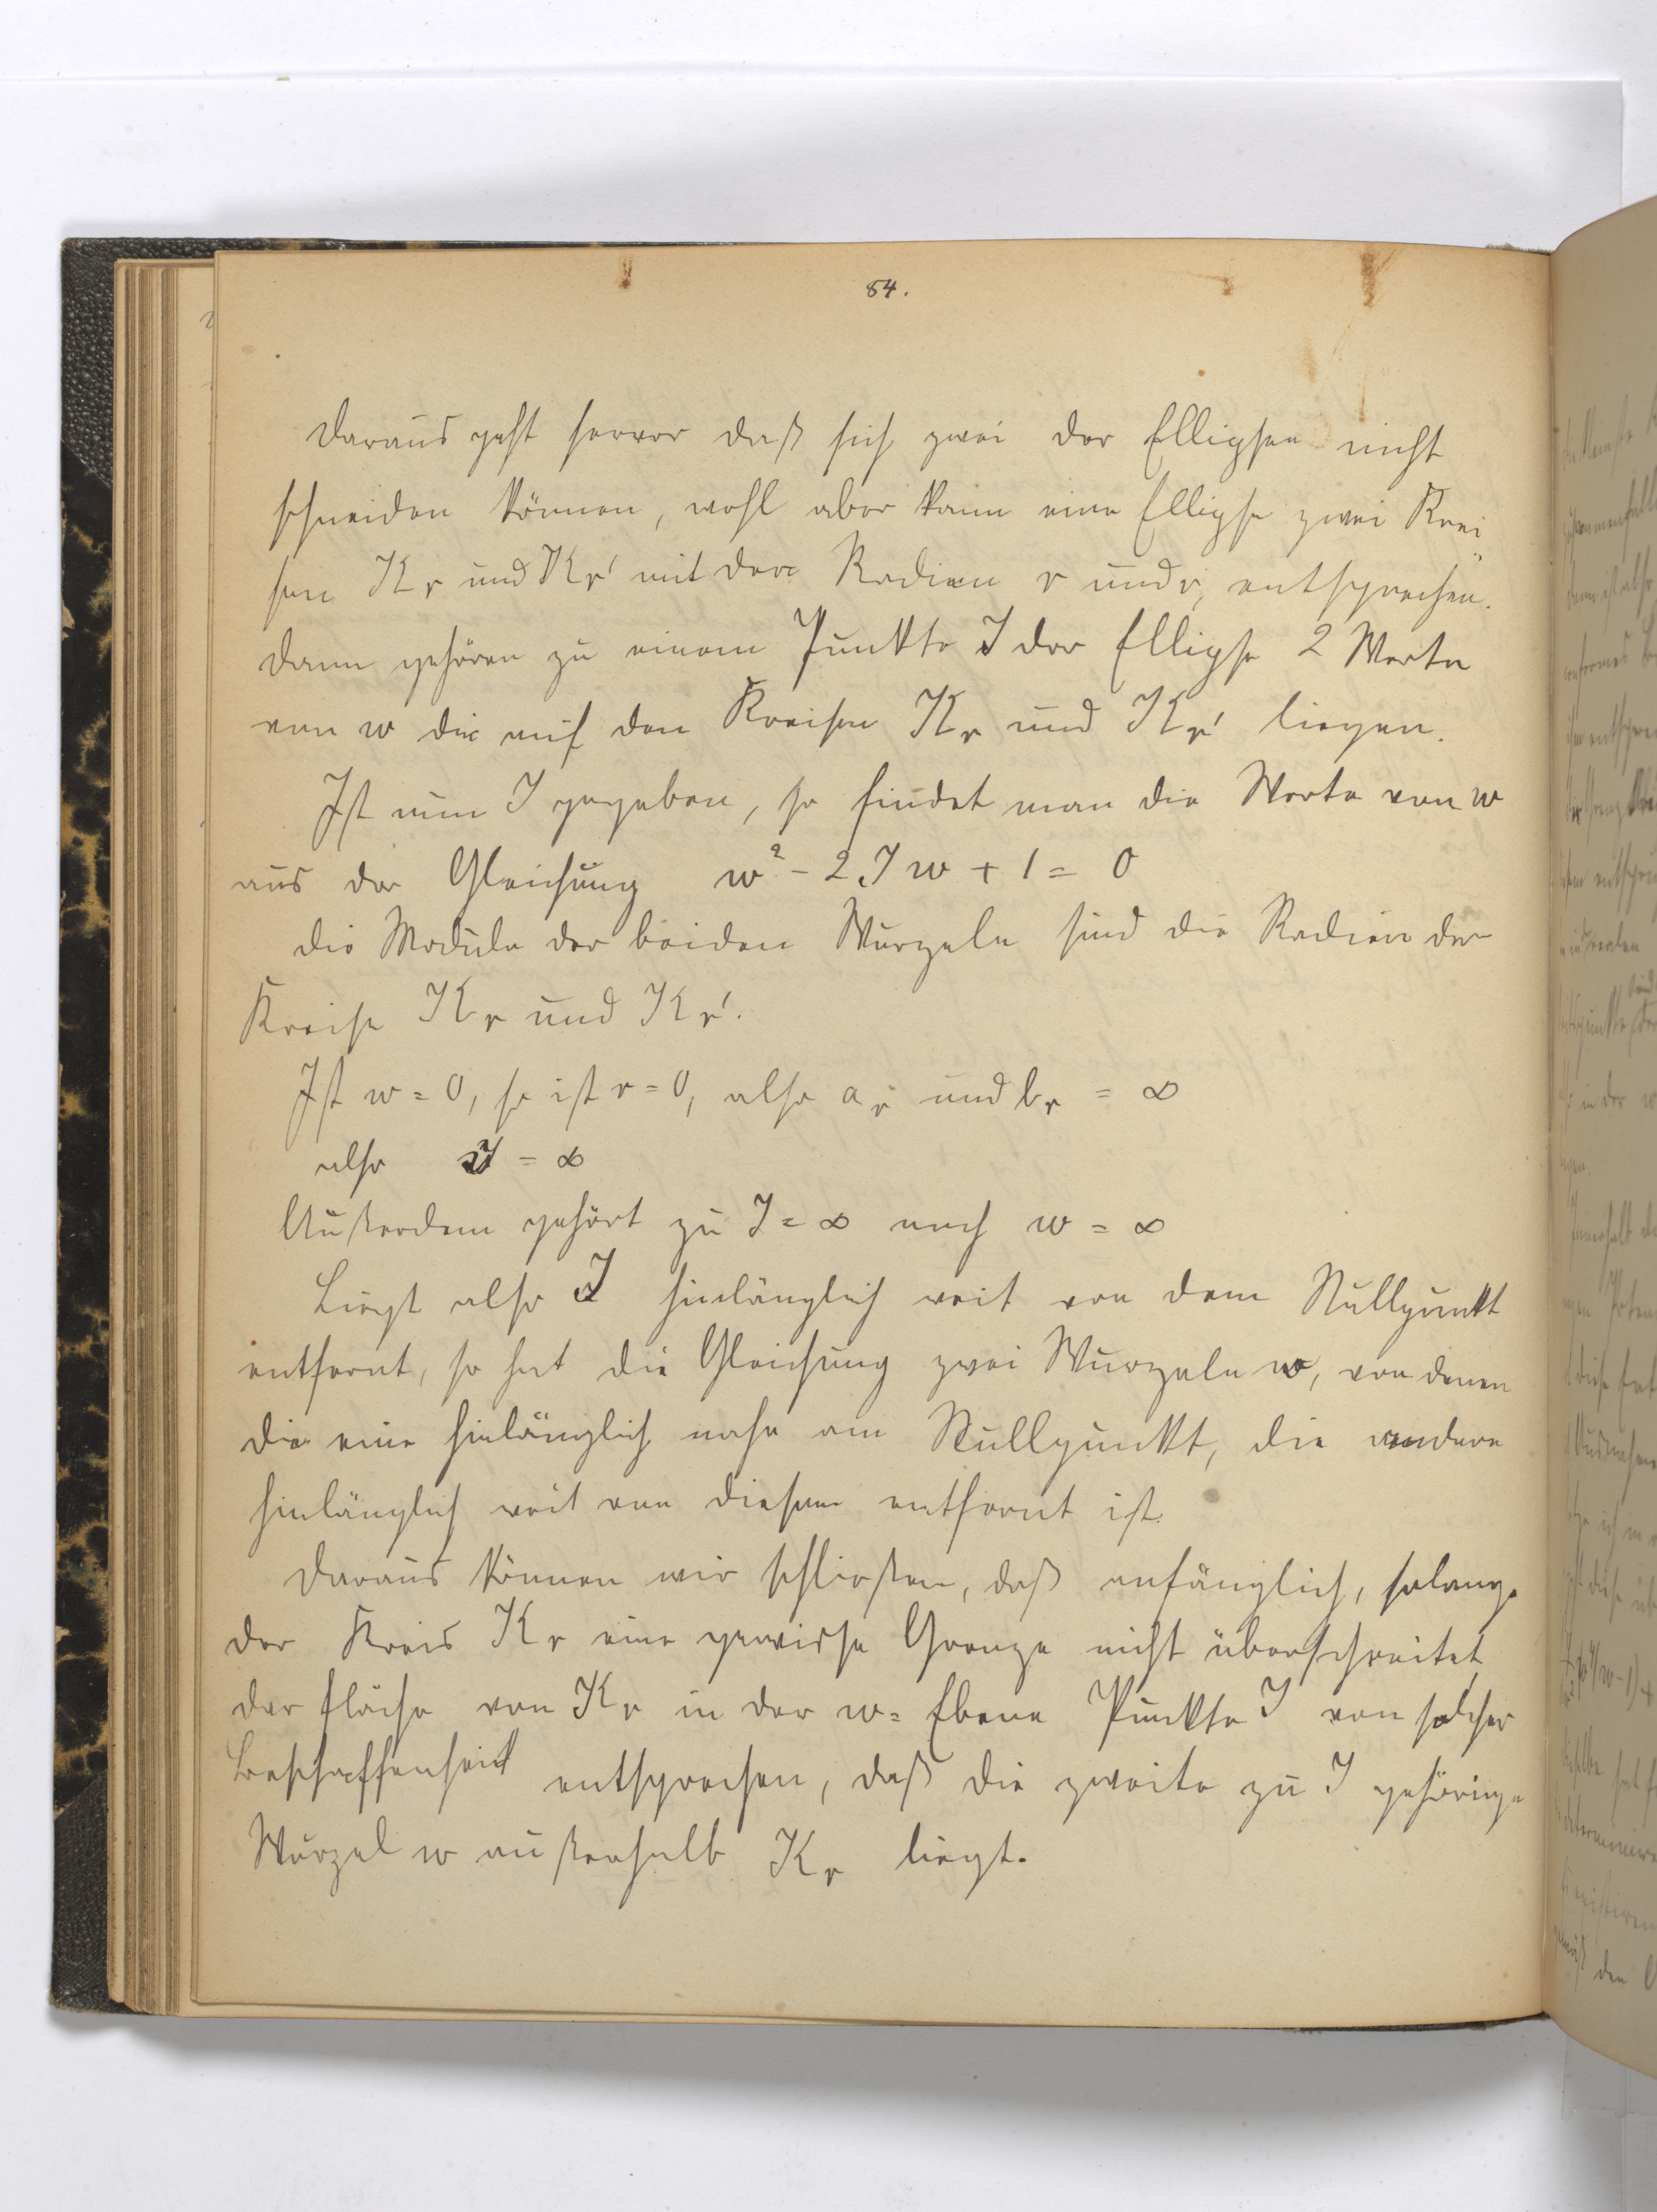 84.
Daraus geht hervor daß sich zwei der Ellipsen nicht
schneiden können, wohl aber kann eine Ellipse zwei Krei
sen Kr und Kr' mit den Radien r und r, entsprechen.
Dann gehören zu einem Punkte J der Ellipse 2 Werte
von w die auf den Kreisen Kr und Kr' liegen.
Ist nun J gegeben, so findet man die Werte von w
aus der Gleichung w² - 2Jw + 1 = 0
Die Module der beiden Wurzeln sind die Radien der
Kreise Kr und Kr'.
Ist w = 0, so ist r = 0, also ar und br = ∞
also J = ∞
Außerdem gehört zu J = ∞ noch w = ∞
Liegt also J hinlänglich weit von dem Nullpunkt
entfernt, so hat die Gleichung zwei Wurzeln w, von denen
die eine hinlänglich nahe am Nullpunkt, die andere
hinlänglich weit von diesem entfernt ist.
Daraus können wir schließen, daß anfänglich, solange
der Kreis Kr eine gewisse Grenze nicht überschreitet,
der Fläche von Kr in der w = Ebene Punkte J von solcher
Beschaffenheit entsprechen, daß die zweite zu J gehörige
Wurzel w außerhalb Kr liegt.